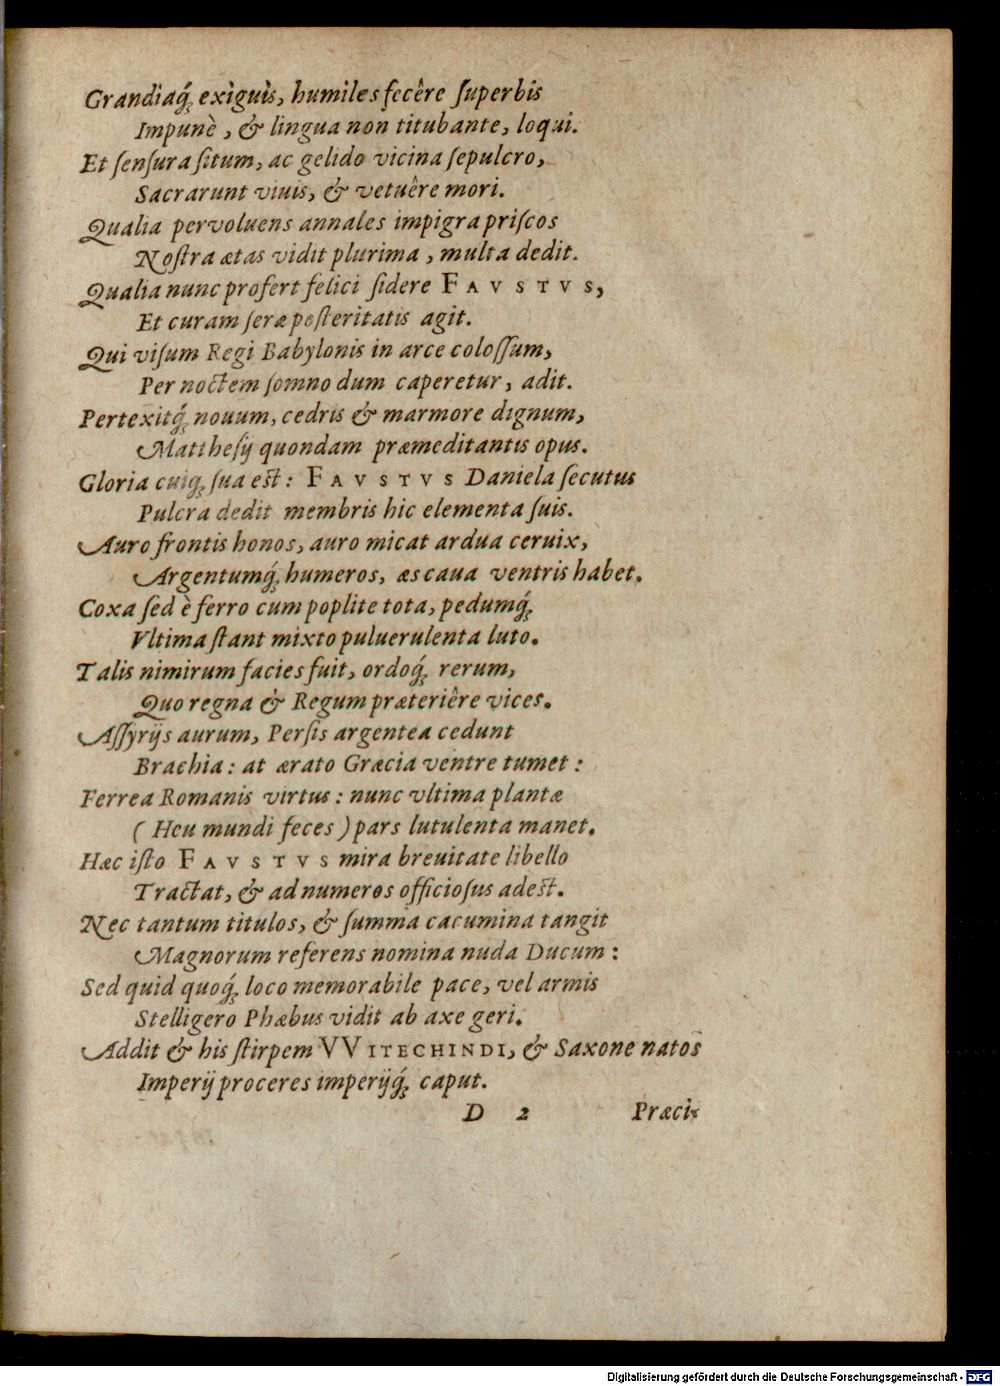 Grandiaq́; exiguis, humiles fecêre ſuperbis
Impunè, & lingua non titubante, loqui.
Et ſenſura ſitum, ac gelido vicina ſepulcro,
Sacrarunt viuis, & vetuêre mori.
Qualia pervoluens annales impigra priſcos
Noſtra ætas vidit plurima, multa dedit.
Qualia nunc profert felici ſidere FAVSTVS,
Et curam ſeræ poſteritatis agit.
Qui viſum Regi Babylonis in arce coloſſum,
Per noctem ſomno dum caperetur, adit.
Pertexitq́; nouum, cedris & marmore dignum,
Mattheſij quondam præmeditantis opus.
Gloria cuiq; ſua eſt: FAVSTVS Daniela ſecutus
Pulcra dedit membris hic elementa ſuis.
Auro frontis honos, auro micat ardua ceruix,
Argentumq́; humeros, æs caua ventris habet.
Coxa ſed è ferro cum poplite tota, pedumq́;
Vltima ſtant mixto puluerulenta luto.
Talis nimirum facies fuit, ordoq́; rerum,
Quo regna & Regum præteriêre vices.
Aſſyrijs aurum, Perſis argentea cedunt
Brachia: at ærato Græcia ventre tumet:
Ferrea Romanis virtus: nunc vltima plantæ
(Heu mundi feces) pars lutulenta manet.
Hæc iſto FAVSTVS mira breuitate libello
Tractat, & ad numeros officioſus adeſt.
Nec tantum titulos, & ſumma cacumina tangit
Magnorum referens nomina nuda Ducum:
Sed quid quoq́; loco memorabile pace, vel armis
Stelligero Phæbus vidit ab axe geri.
Addit & his ſtirpem VVITECHINDI, & Saxone natos
Imperij proceres imperijq́; caput.
D 2 Præci-
Digitalisierung gefördert durch die Deutsche Forschungsgemeinschaft - DFG